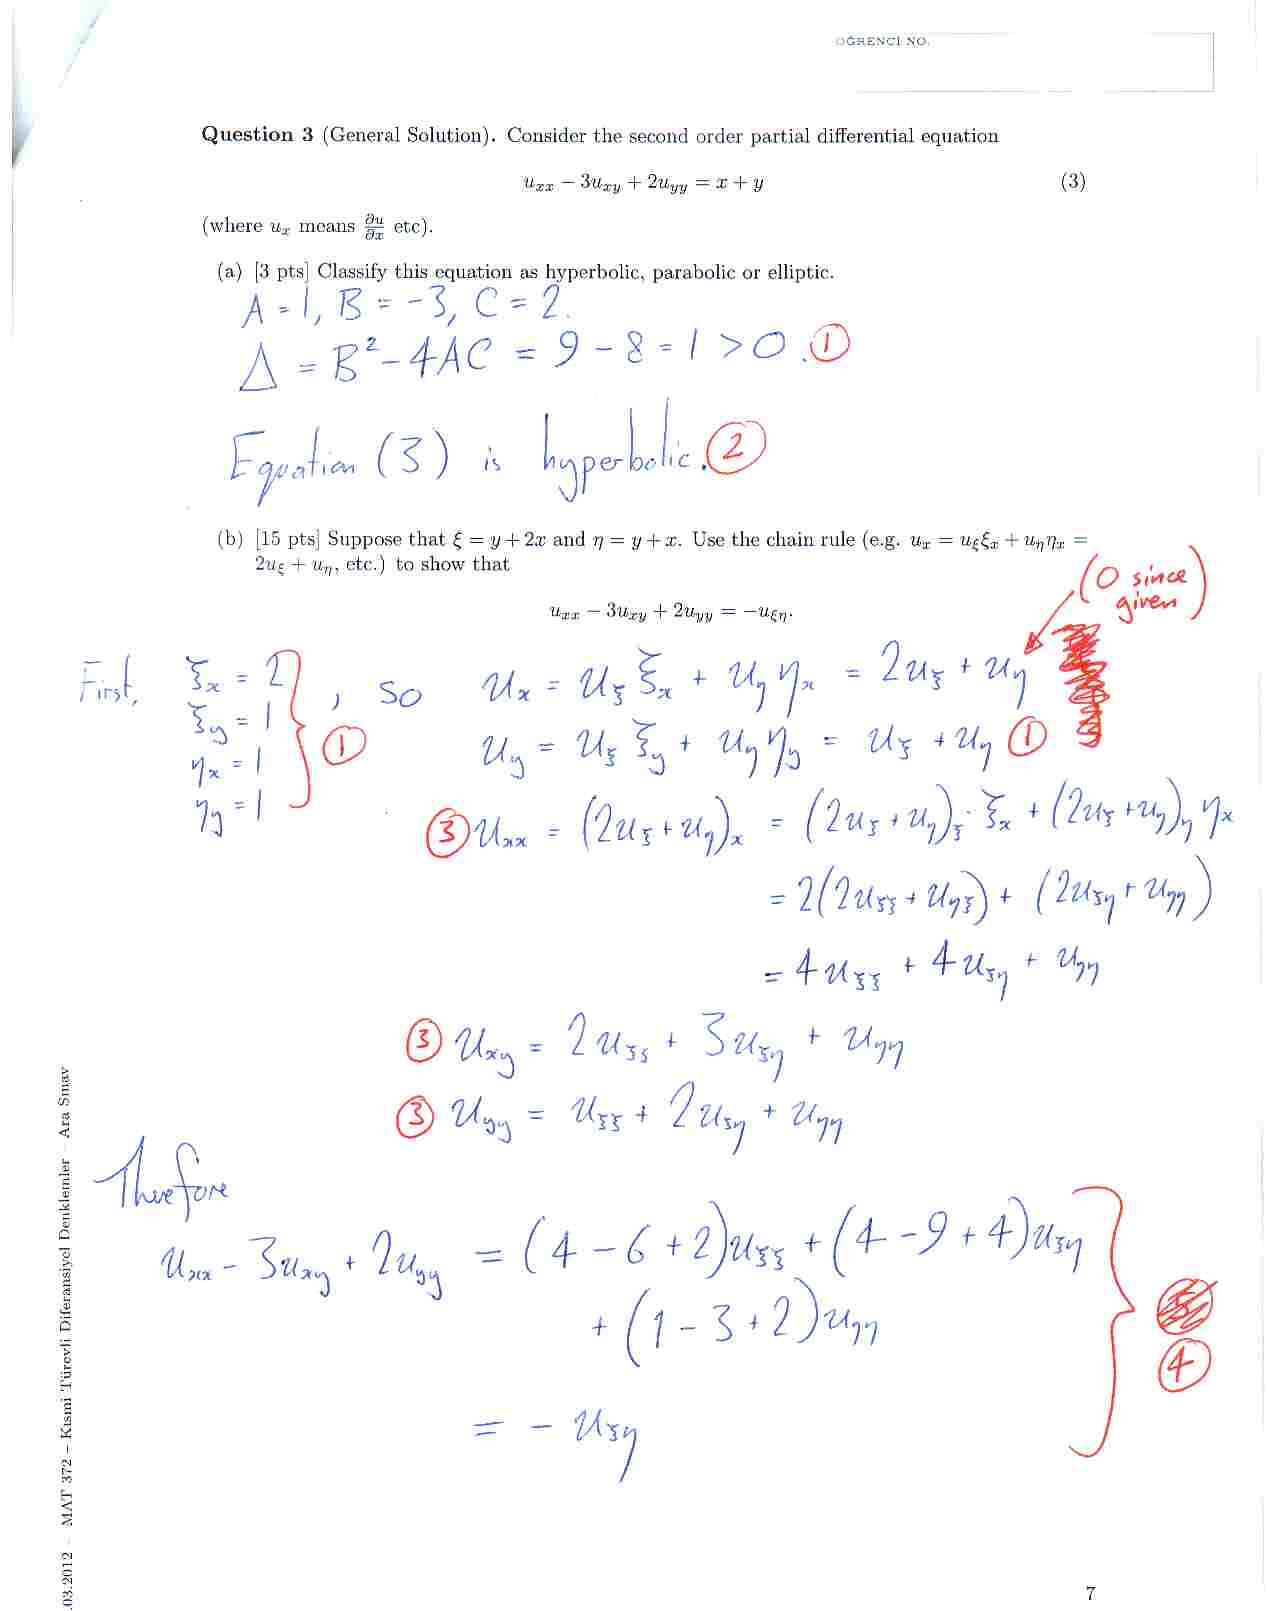 ÖĞRENCİ NO.
Question 3 (General Solution). Consider the second order partial differential equation
u_xx − 3u_xy + 2u_yy = x + y (3)
(where u_x means ∂u/∂x etc).
(a) [3 pts] Classify this equation as hyperbolic, parabolic or elliptic.
A = 1, B = −3, C = 2.
Δ = B² − 4AC = 9 − 8 = 1 > 0. ①
Equation (3) is hyperbolic. ②
(b) [15 pts] Suppose that ξ = y + 2x and η = y + x. Use the chain rule (e.g. u_x = u_ξ ξ_x + u_η η_x =
2u_ξ + u_η, etc.) to show that
u_xx − 3u_xy + 2u_yy = −u_ξη.
(0 since
given)
First, ξ_x = 2
ξ_y = 1
η_x = 1
η_y = 1
①
, so u_x = u_ξ ξ_x + u_η η_x = 2u_ξ + u_η
u_y = u_ξ ξ_y + u_η η_y = u_ξ + u_η ①
③ u_xx = (2u_ξ + u_η)_x = (2u_ξ + u_η)_ξ · ξ_x + (2u_ξ + u_η)_η η_x
= 2(2u_ξξ + u_ηξ) + (2u_ξη + u_ηη)
= 4u_ξξ + 4u_ξη + u_ηη
③ u_xy = 2u_ξξ + 3u_ξη + u_ηη
③ u_yy = u_ξξ + 2u_ξη + u_ηη
Therefore
u_xx − 3u_xy + 2u_yy = (4 − 6 + 2)u_ξξ + (4 − 9 + 4)u_ξη
+ (1 − 3 + 2)u_ηη
④
= − u_ξη
.03.2012 - MAT 372 – Kısmi Türevli Diferansiyel Denklemler – Ara Sınav
7